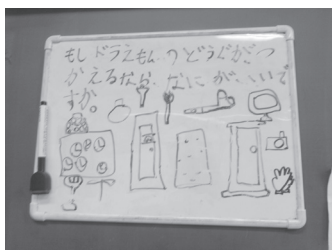 もしドラえもんのどうぐがつ
かえるなら、なにが、いいで
すか。